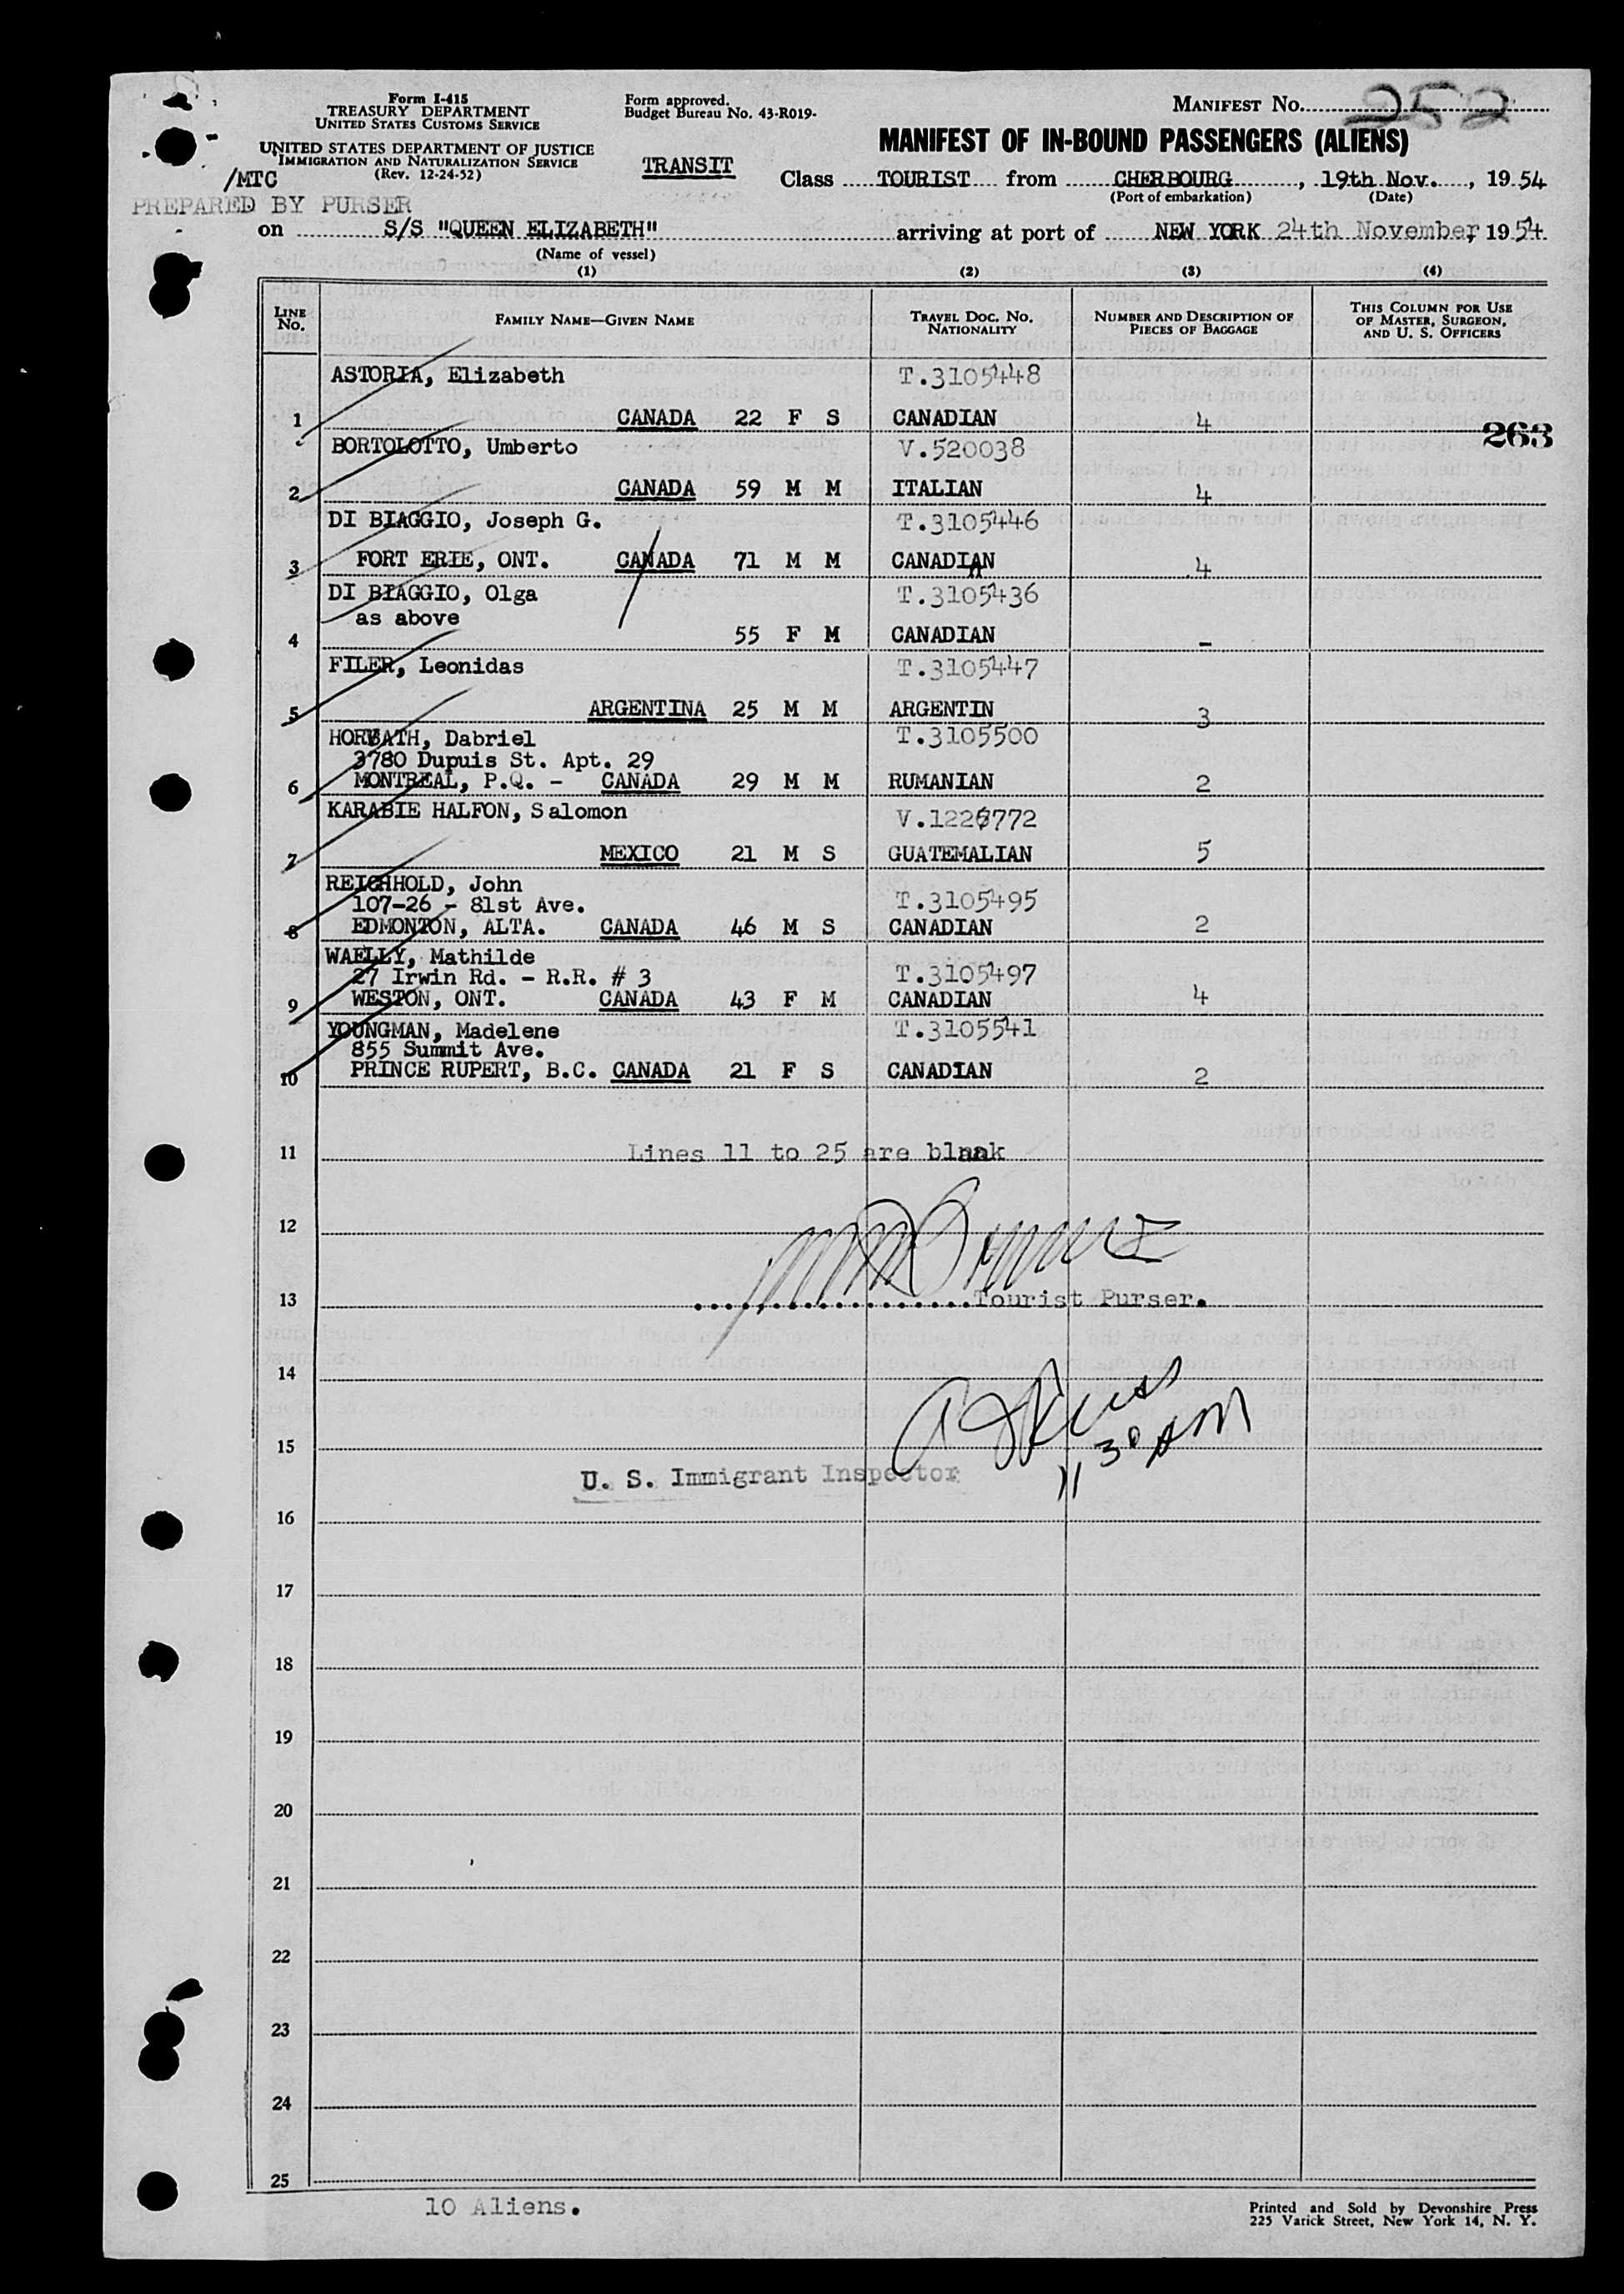 Form I-415
TREASURY DEPARTMENT
UNITED STATES CUSTOMS SERVICE
UNITED STATES DEPARTMENT OF JUSTICE
IMMIGRATION AND NATURALIZATION SERVICE
(Rev. 12-24-52)
/MTC
PREPARED BY PURSER
Form approved.
Budget Bureau No. 43-R019-
TRANSIT
MANIFEST No. 252
MANIFEST OF IN-BOUND PASSENGERS (ALIENS)
Class TOURIST from CHERBOURG, 19th Nov., 1954
(Port of embarkation) (Date)
on S/S "QUEEN ELIZABETH" arriving at port of NEW YORK 24th November, 1954
(Name of vessel)
(1) (2) (3) (4)
LINE No. FAMILY NAME—GIVEN NAME TRAVEL DOC. NO. NATIONALITY NUMBER AND DESCRIPTION OF PIECES OF BAGGAGE THIS COLUMN FOR USE OF MASTER, SURGEON, AND U. S. OFFICERS
ASTORIA, Elizabeth T.3105448
1 CANADA 22 F S CANADIAN 4
263
BORTOLOTTO, Umberto V.520038
2 CANADA 59 M M ITALIAN 4
DI BIAGGIO, Joseph G. T.3105446
3 FORT ERIE, ONT. CANADA 71 M M CANADIAN 4
DI BIAGGIO, Olga T.3105436
as above
4 55 F M CANADIAN -
FILER, Leonidas T.3105447
5 ARGENTINA 25 M M ARGENTIN 3
HORVATH, Dabriel T.3105500
3780 Dupuis St. Apt. 29
6 MONTREAL, P.Q. - CANADA 29 M M RUMANIAN 2
KARABIE HALFON, Salomon V.1226772
7 MEXICO 21 M S GUATEMALIAN 5
REICHHOLD, John
107-26 - 81st Ave. T.3105495
8 EDMONTON, ALTA. CANADA 46 M S CANADIAN 2
WAELLY, Mathilde
27 Irwin Rd. - R.R. # 3 T.3105497
9 WESTON, ONT. CANADA 43 F M CANADIAN 4
YOUNGMAN, Madelene T.3105541
855 Summit Ave.
10 PRINCE RUPERT, B.C. CANADA 21 F S CANADIAN 2
11 Lines 11 to 25 are blank
12
13 Tourist Purser.
14
15
11 30 AM
U. S. Immigrant Inspector
16
17
18
19
20
21
22
23
24
25
10 Aliens.
Printed and Sold by Devonshire Press
225 Varick Street, New York 14, N. Y.